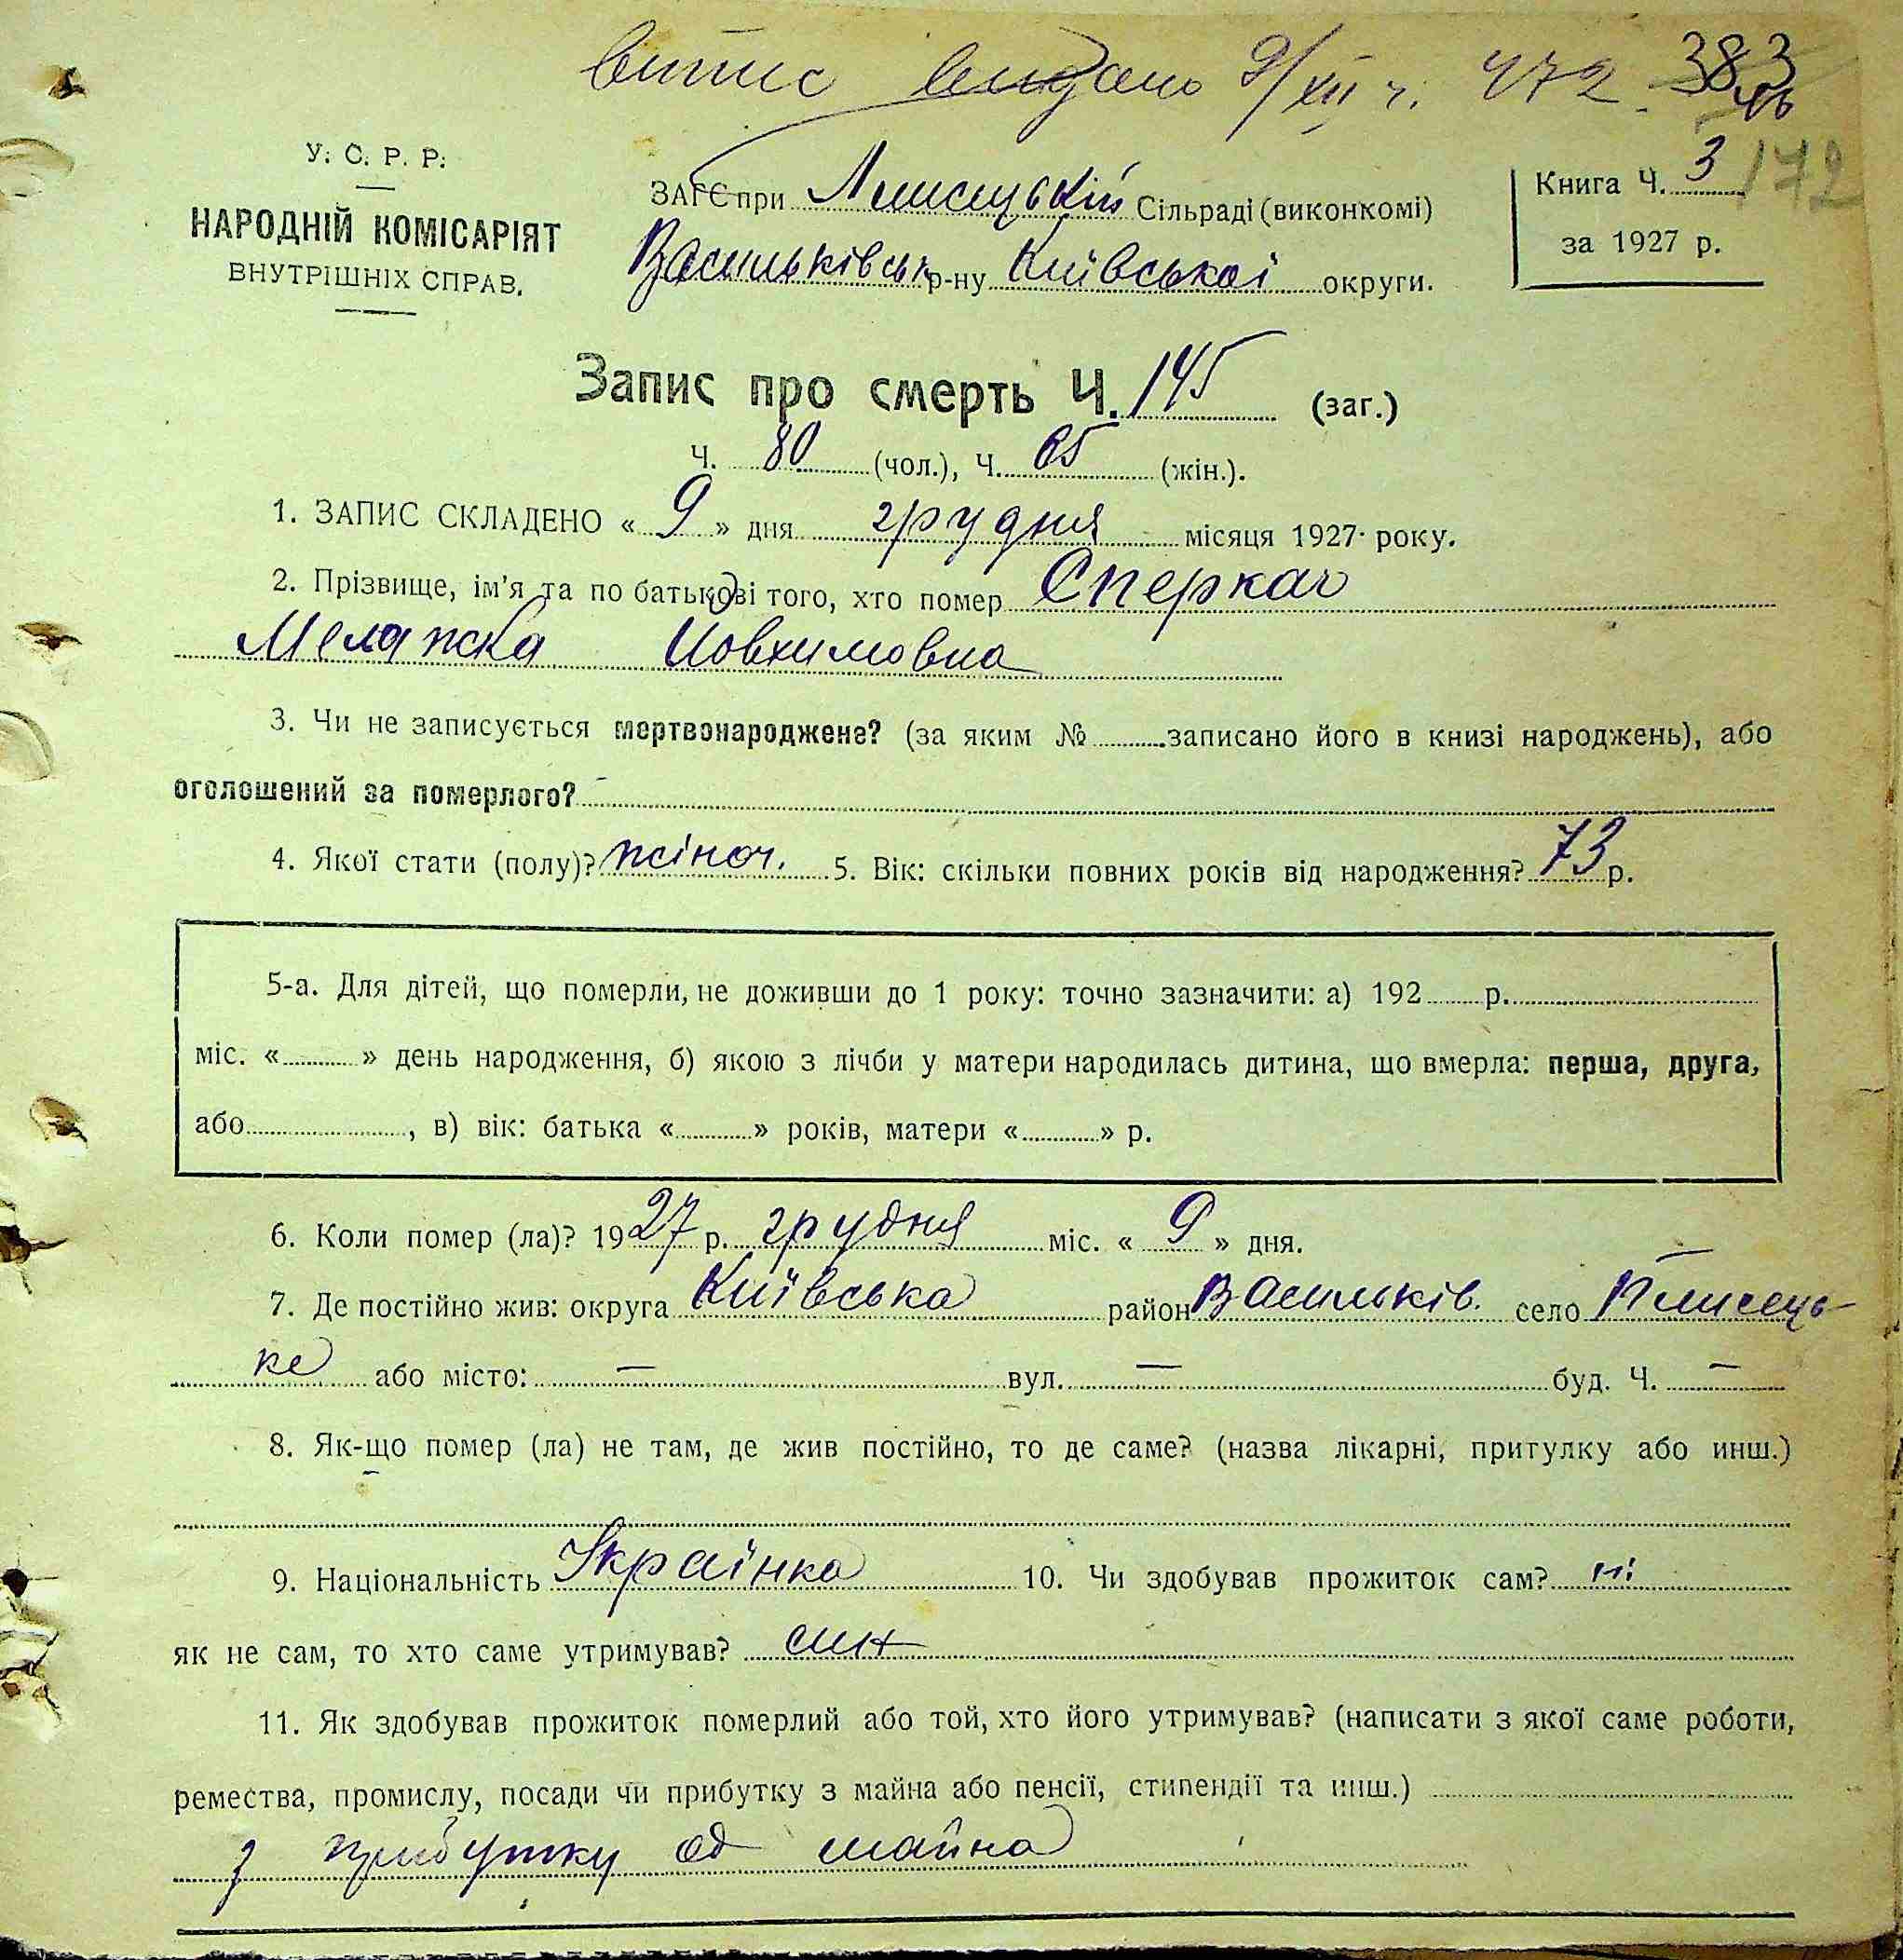 витис видано 9/XII ч. 472. 383
У. С. Р. Р.
НАРОДНІЙ КОМІСАРІЯТ
ВНУТРІШНІХ СПРАВ.
ЗАГС при Плисецькій Сільраді (виконкомі)
Васильківськ р-ну Київської округи.
Книга Ч. 3 172
за 1927 р.
Запис про смерть Ч. 145 (заг.)
Ч. 80 (чол.), Ч. 65 (жін.).
1. ЗАПИС СКЛАДЕНО « 9 » дня грудня місяця 1927 року.
2. Прізвище, ім'я та по батькові того, хто помер Сперкач
Мелажка Иовхимовна
3. Чи не записується мертвонароджене? (за яким № записано його в книзі народжень), або
оголошений за померлого? -
4. Якої стати (полу)? жіноч. 5. Вік: скільки повних років від народження? 73 р.
5-а. Для дітей, що померли, не доживши до 1 року: точно зазначити: а) 192 р.
міс. « » день народження, б) якою з лічби у матери народилась дитина, що вмерла: перша, друга,
або , в) вік: батька « » років, матери « » р.
6. Коли помер (ла)? 1927 р. грудня міс. « 9 » дня.
7. Де постійно жив: округа Київська район Васильків. село Плисець-
ке або місто: — вул. — буд. Ч. —
8. Як-що помер (ла) не там, де жив постійно, то де саме? (назва лікарні, притулку або инш.)
-
9. Національність Українка 10. Чи здобував прожиток сам? ні
як не сам, то хто саме утримував? син
11. Як здобував прожиток померлий або той, хто його утримував? (написати з якої саме роботи,
ремества, промислу, посади чи прибутку з майна або пенсії, стипендії та инш.)
з прибутку од майна